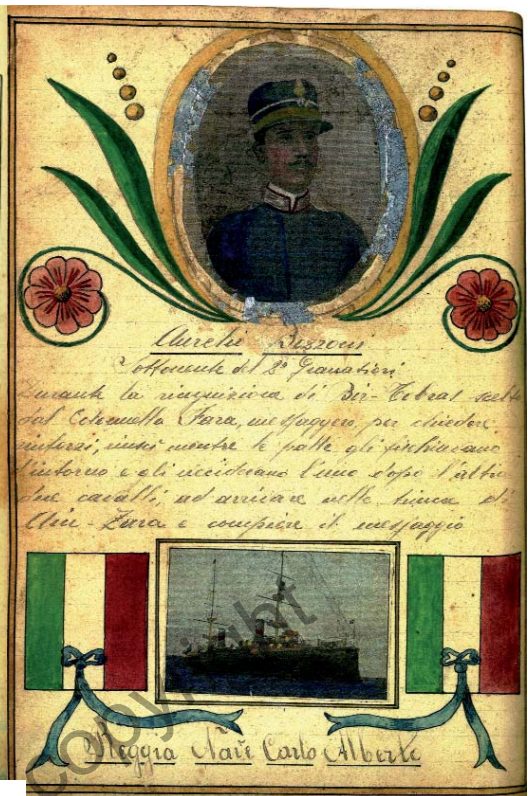 Aurelio Bezzoni
Sottotenente del 2º Granatieri
Durante la ricognizione di Bir-Tobras scelto
dal Colonnello Fara, messaggero, per chiedere
rinforzi, riuscì mentre le palle gli fischiavano
d'intorno e gli uccidevano l'uno dopo l'altro
due cavalli, ad arrivare nelle linee di
Ain-Zara e compiere il messaggio
Reggia Nave Carlo Alberto
copyright